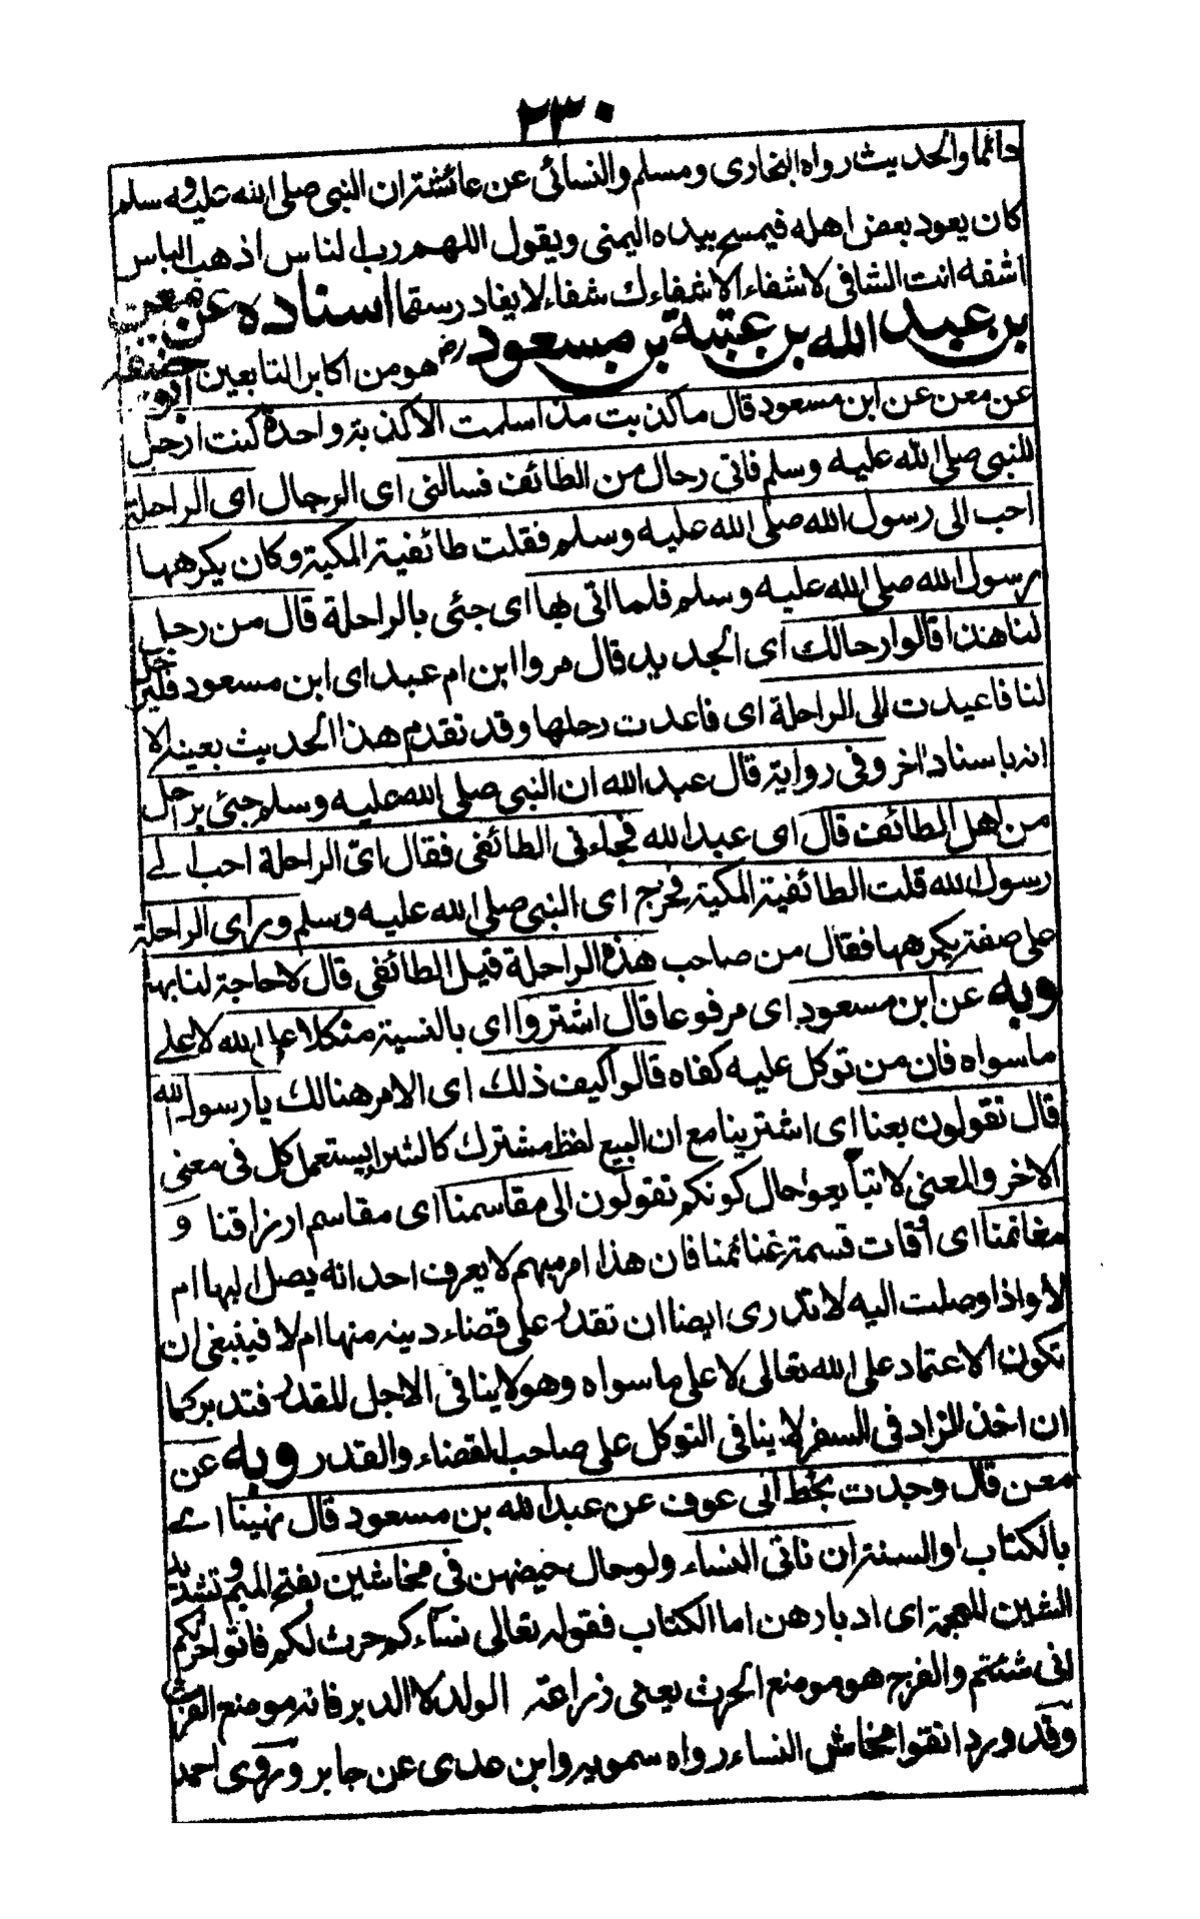 ٢٣٠
دائما والحديث رواه البخارى ومسلم والنسائى عن عائشة ان النبى صلى الله عليه وسلم
كان يعود بعض اهله فيمسح بيده اليمنى ويقول اللهم رب الناس اذهب الباس
اشفه انت الشافى لا شفاء الا شفاءك شفاء لا يغادر سقما اسناده عن معن
بن عبد الله بن عتبة بن مسعود رض هو من اكابر التابعين ابو حنيفة
عن معن عن ابن مسعود قال ما كذبت مذ اسلمت الا كذبة واحدة كنت ارحل
للنبى صلى الله عليه وسلم فاتى رحال من الطائف فسالنى اى الرحال اى الراحلة
احب الى رسول الله صلى الله عليه وسلم فقلت طائفية المكية وكان يكرهها
رسول الله صلى الله عليه وسلم فلما اتى بها اى جئى بالراحلة قال من رحل
لنا هذا قالوا رحالك اى الجديد قال مروا ابن ام عبد اى ابن مسعود فليرحل
لنا فاعيدت الى الراحلة اى فاعدت رحلها وقد تقدم هذا الحديث بعينه الا
انه باسناد اخر وفى رواية قال عبد الله ان النبى صلى الله عليه وسلم جئى برحل
من اهل الطائف قال اى عبد الله فجاء نى الطائفى فقال اى الراحلة احب الے
رسول الله قلت الطائفية المكية فخرج اى النبى صلى الله عليه وسلم وراى الراحلة
على صفة يكرهها فقال من صاحب هذه الراحلة قيل الطائفى قال لا حاجة لنا بها
وبه عن ابن مسعود اى مرفوعا قال اشتروا اى بالنسية متكلا على الله لا على
ما سواه فان من توكل عليه كفاه قالوا كيف ذلك اى الامر هنالك يا رسول الله
قال تقولون بعنا اى اشترينا مع ان البيع لفظ مشترك كالشرا يستعمل كل فى معنى
الاخر والمعنى لا تبايعوا حال كونكم تقولون الى مقاسمنا اى مقاسم ارزاقنا و
مغانمنا اى اوقات قسمة غنائمنا فان هذا امر مبهم لا يعرف احد انه يصل اليها ام
لا واذا وصلت اليه لا تدرى ايضا ان تقدر على قضاء دينه منها ام لا فينبغى ان
تكون الاعتماد على الله تعالى لا على ما سواه وهو لا ينافى الاجل للقدر فتدبر كما
ان اخذ الزاد فى السفر لا ينافى التوكل على صاحب القضاء والقدر وبه عن
معن قال وجدت بخط ابى عوف عن عبد الله بن مسعود قال نهينا اے
بالكتاب او السنة ان ناتى النساء ولو حال حيضهن فى محاشين بفتح الميم وتشديد
الشين المعجمة اى ادبارهن اما الكتاب فقوله تعالى نساءكم حرث لكم فاتوا حرثكم
انى شئتم والفرج هو موضع الحرث يعنى زراعة الولد لا الدبر فانه موضع الفرث
وقد ورد اتقوا محاش النساء رواه سمويه وابن عدى عن جابر وروى احمد